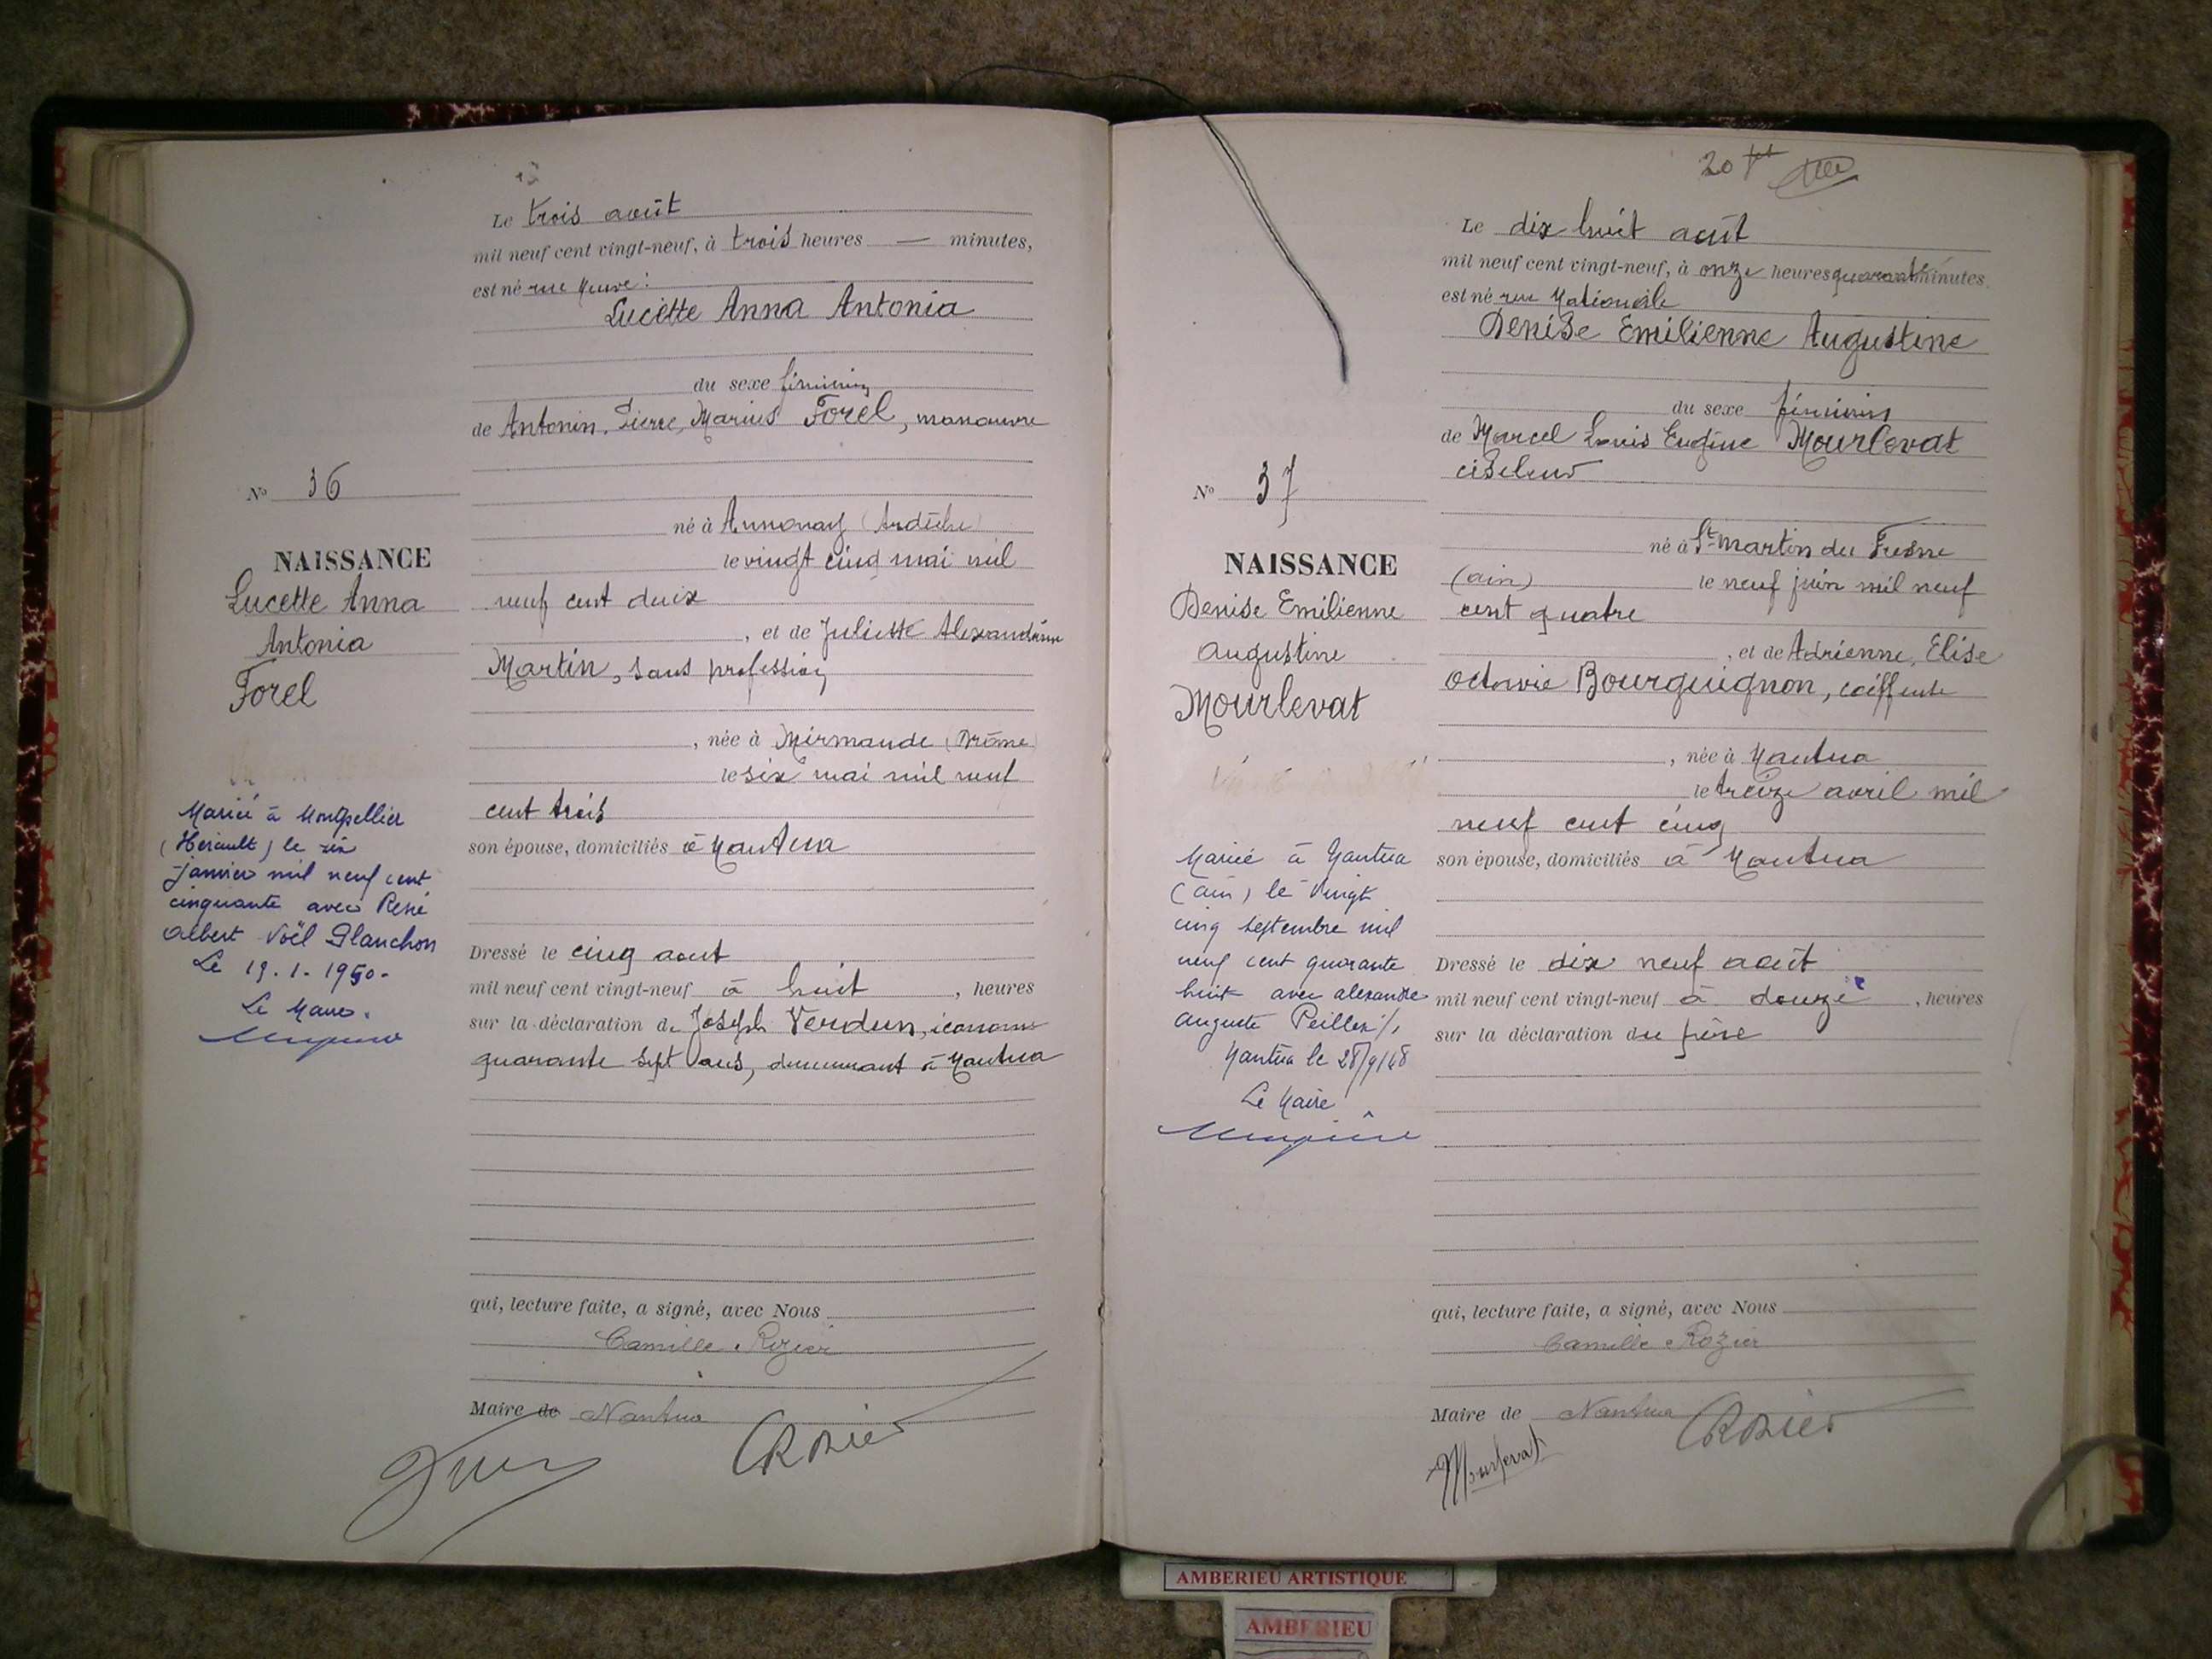 Le trois août
mil neuf cent vingt-neuf, à trois heures — minutes,
est né rue Neuve :
Lucette Anna Antonia
du sexe féminin
de Antonin, Pierre, Marius Forel, manœuvre
N° 36
né à Annonay (Ardèche)
NAISSANCE
le vingt cinq mai mil
Lucette Anna
neuf cent deux
Antonia
, et de Juliette Alexandrine
Forel
Martin, sans profession
, née à Mirmande (Drôme)
le six mai mil neuf
cent trois
son épouse, domiciliés à Nantua
Mariée à Montpellier
(Hérault) le six
janvier mil neuf cent
cinquante avec René
Albert Noël Planchon
Le 19.1.1950.
Le Maire.
Dressé le cinq aout
mil neuf cent vingt-neuf à huit , heures
sur la déclaration de Joseph Verdun, économe
quarante sept ans, demeurant à Nantua
qui, lecture faite, a signé, avec Nous
Camille Rozier
Maire de Nantua
CRozier
20 
Le dix huit août
mil neuf cent vingt-neuf, à onze heures quarante minutes
est né rue Nationale
Denise Emilienne Augustine
du sexe féminin
de Marcel Louis Eugène Mourlevat
ciseleur
N° 37
né à St Martin du Fresne
NAISSANCE
(ain) le neuf juin mil neuf
Denise Emilienne
cent quatre
Augustine
, et de Adrienne, Elise
Mourlevat
Octavie Bourguignon, coiffeuse
, née à Nantua
le treize avril mil
neuf cent cinq
son épouse, domiciliés à Nantua
Mariée à Nantua
(ain) le vingt
cinq septembre mil
neuf cent quarante
huit avec alexandre
Auguste
Nantua le 28/9/48
Le Maire
Dressé le dix neuf août
mil neuf cent vingt-neuf à douze , heures
sur la déclaration du père
qui, lecture faite, a signé, avec Nous
Camille Rozier
Maire de Nantua
Mourlevat
CRozier
AMBERIEU ARTISTIQUE
AMBERIEU